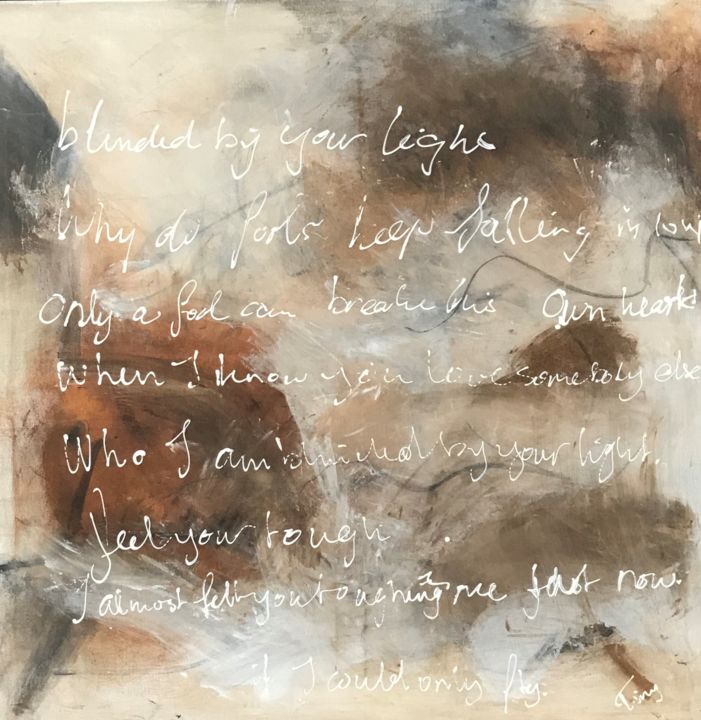 blinded by your light
Why do fools keep falling in lov
Only a fool can break his own heart
When I know you love somebody else
Who I am blinded by your light.
feel your tough .
I almost felt you toughing me just now.
if I could only fly.